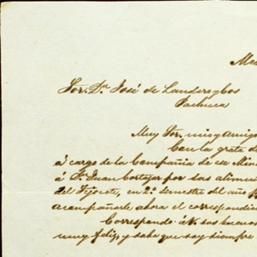 Me
Sor. Dn. José de Landero y Cos
Pachuca
Muy Sor. mio y amigo
Con la grata de
á cargo de la Compañia de ese Mine
á D. Juan Cortazar por sus alimen
del Fijoste, en 2o. semestre del año p
acompañarle ahora el correspondie
Correspondo á V. sus buenos
muy feliz y sabe que soy siempre